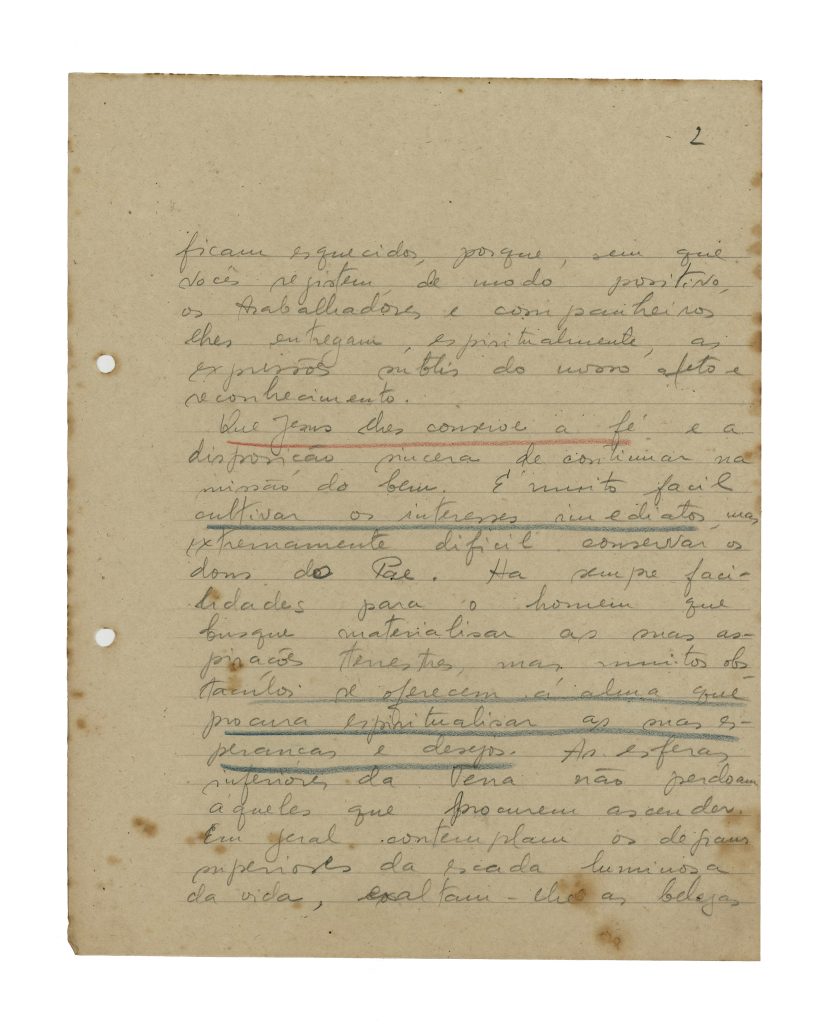 2
ficam esquecidos, porque, sem que
vocês registem, de modo positivo,
os trabalhadores e companheiros
lhes entregam, espiritualmente, as
expressões subtis do nosso afeto e
reconhecimento.
Que Jesus lhes conserve a fé e a
disposição sincera de continuar na
missão do bem. É muito facil
cultivar os interesses imediatos, mas
extremamente dificil conservar os
dons do Pae. Ha sempre faci-
lidades para o homem que
busque materialisar as suas as-
pirações terrestres, mas muitos obs-
taculos se oferecem á alma que
procura espiritualisar as suas es-
peranças e desejos. As esferas
inferiores da Terra não perdoam
áqueles que procurem ascender.
Em geral contemplam os degraus
superiores da escada luminosa
da vida, exaltam-lhe as belezas